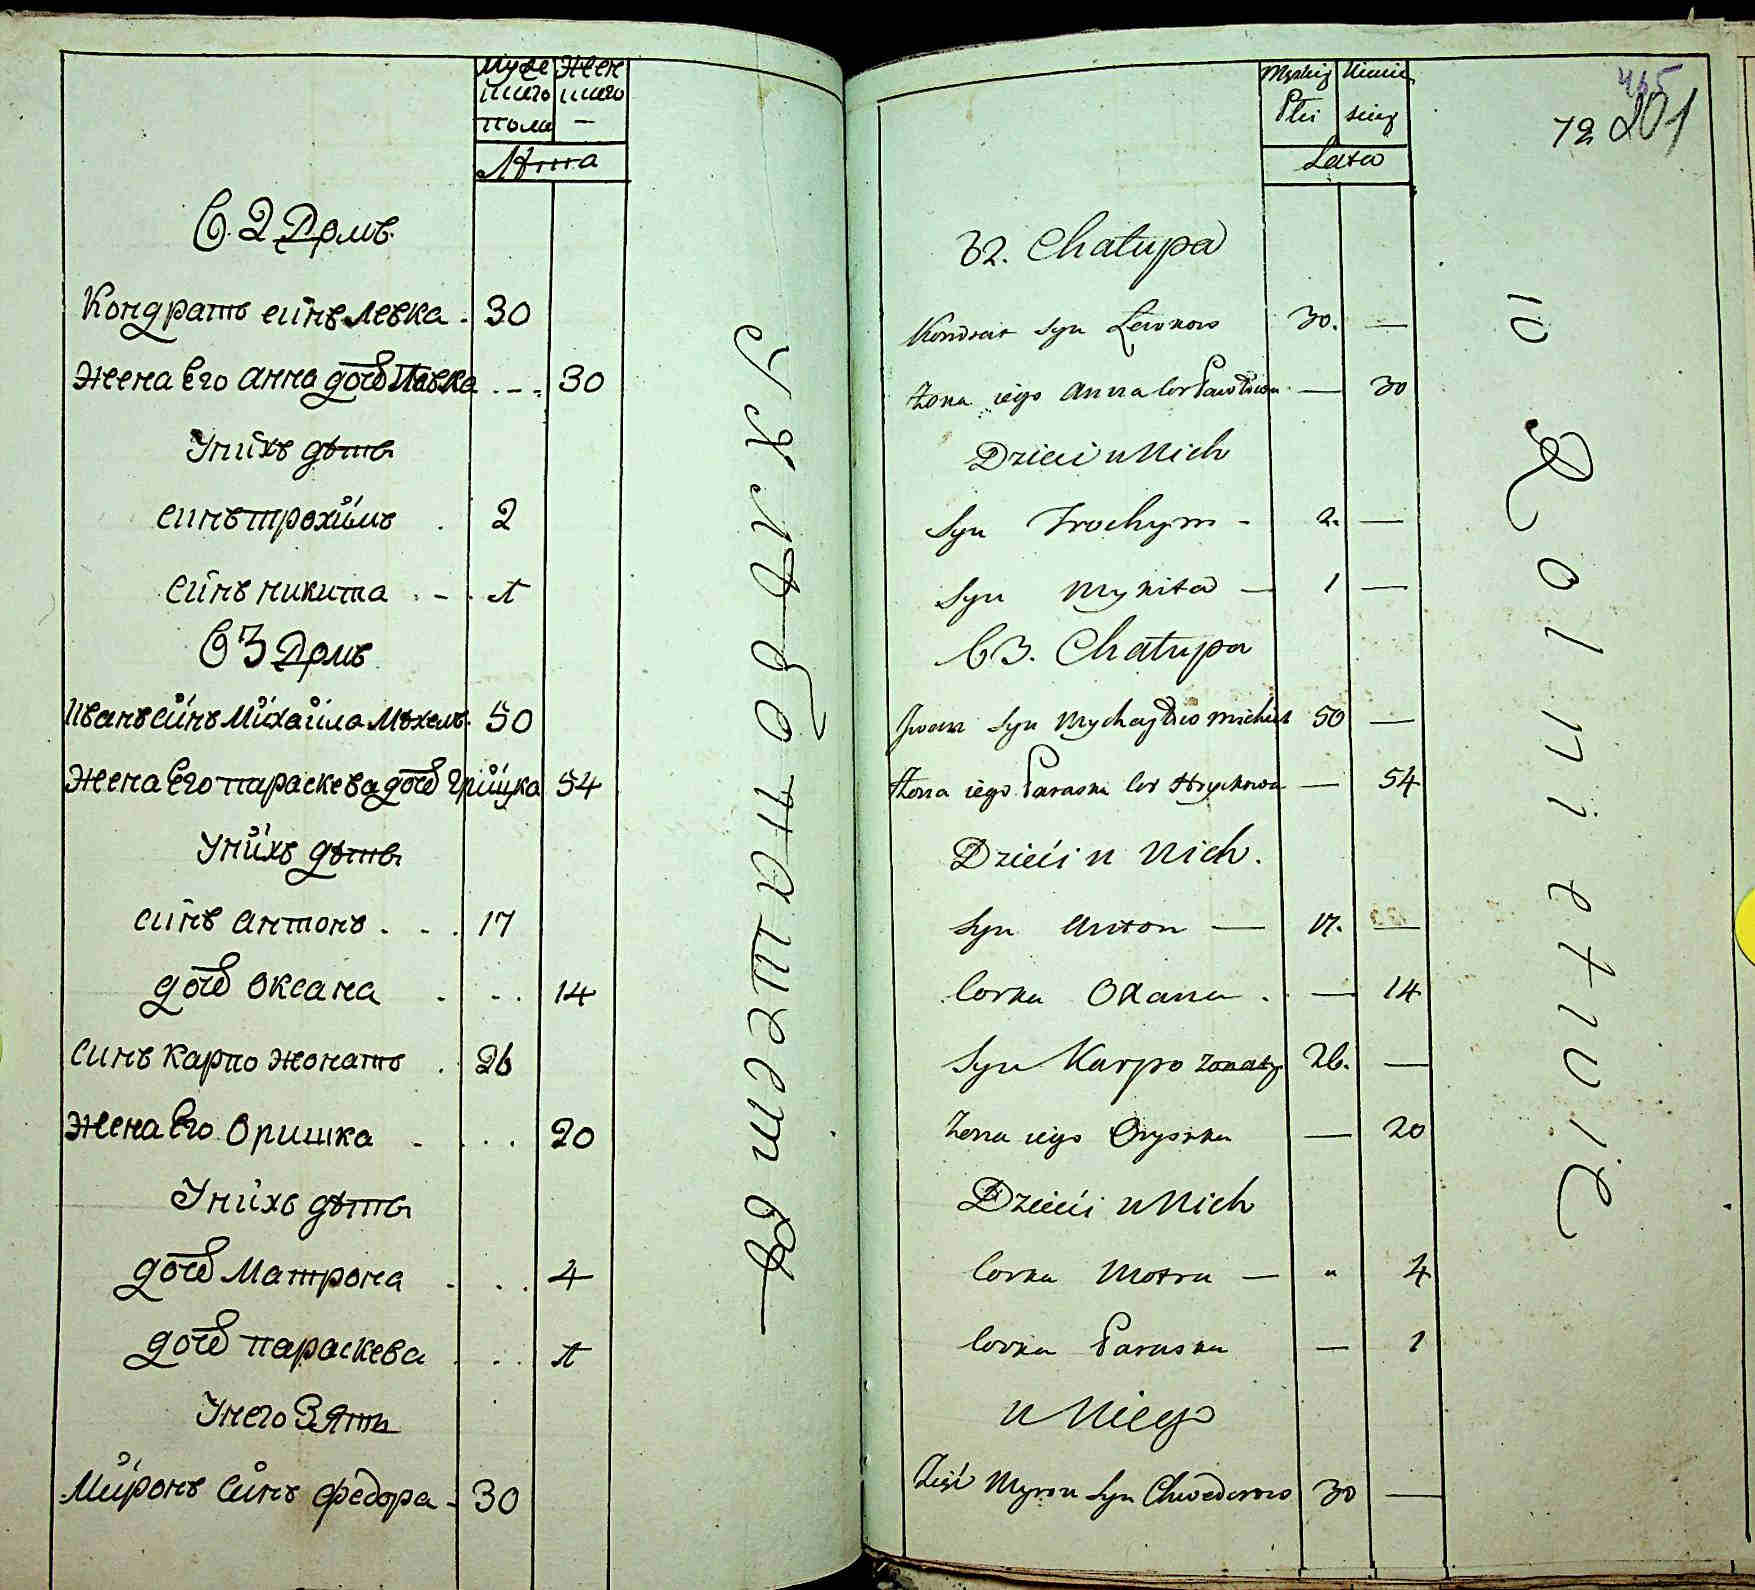 Муже Жен
ского ского
пола —
Лѣта
62 Домъ
Кондратъ синъ Левка . 30
Жена Его Анна дочъ Павка . – . 30
У нихъ дѣтѣ
синъ трохимъ . 2
синъ никита . – . 1
63 Домъ
Иванъ синъ Михайла Мѣхель 50
Жена Его параскева дочъ Грицка 54
У нихъ дѣтѣ
синъ Антонъ . . . 17
дочъ Оксана . . . 14
Синъ Карпо жонатъ . 26
Жена Его Оришка . . . 20
У нихъ дѣтѣ
дочъ Матрона . . . 4
дочъ параскева . . . 1
У него Зять
Миронъ Синъ федора – 30
72 201
465
Męskiej
Płci
Lata
62. Chałupa
Kondrat Syn Lewkow 30. —
Żona iego Anna Cor Pawłowa — 30
Dzieci u Nich
Syn Trochym – 2. —
Syn Mykita — 1 —
63. Chałupa
Jwan Syn Mychayłow Michiel 50 —
Żona iego Paraska Cor Hryckowa — 54
Dzieci u Nich.
Syn Anton — 17. —
Corka Oxana . — 14
Syn Karpo żonaty 26. —
Żona iego Oryszka — 20
Dzieci u Nich
Corka Motra — " 4
Corka Paraska — 1
u Niego
Zięć Myron Syn Chwedorow 30 —